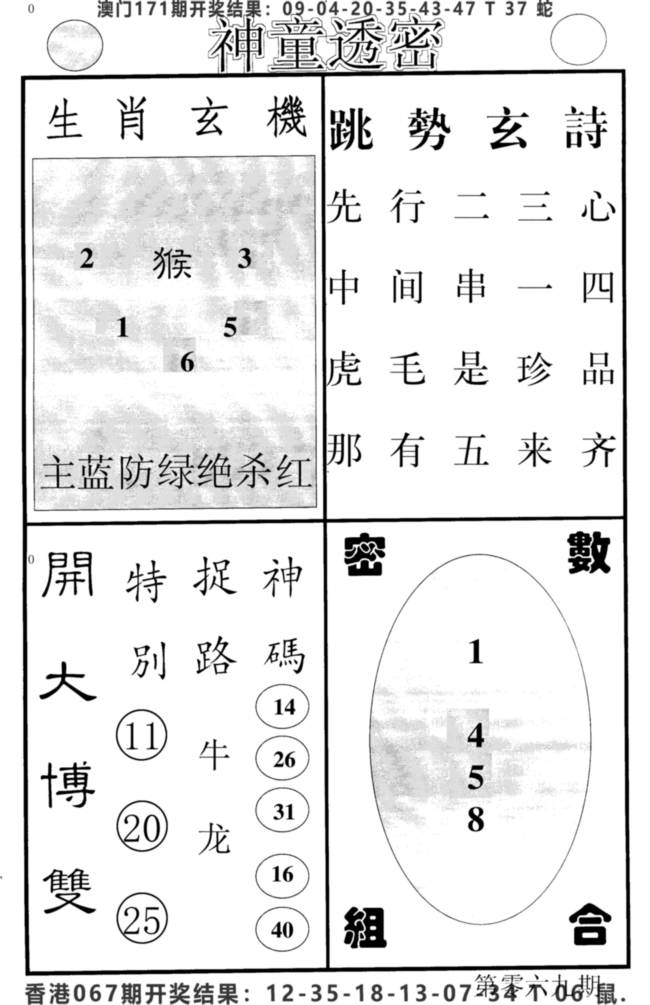 澳门171期开奖结果：09-04-20-35-43-47 T 37 蛇
0
神童透密
生肖玄機
2 猴 3
1 5
6
主蓝防绿绝杀红
跳勢玄詩
先行二三心
中间串一四
虎毛是珍品
那有五来齐
0
開大博雙
特别
11
20
25
捉路
牛
龙
神碼
14
26
31
16
40
密數
1
4
5
8
組合
第零六九期
香港067期开奖结果：12-35-18-13-07-34 T 06 鼠.